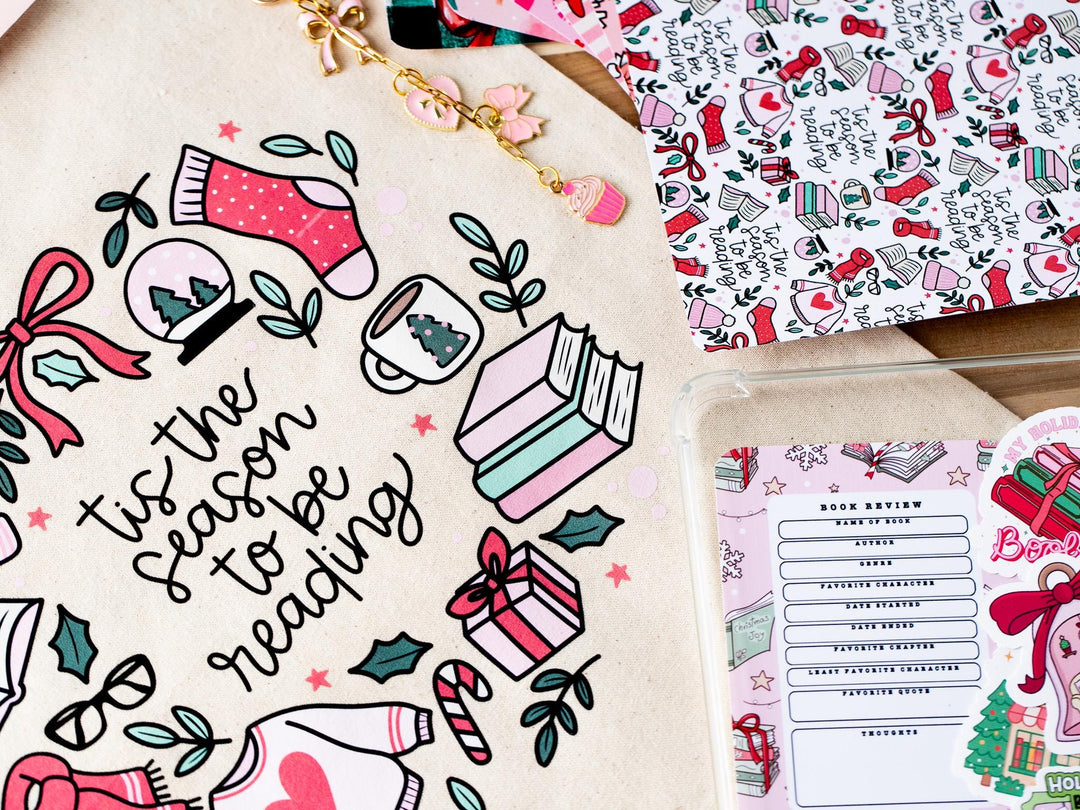 tis the
season
to be
reading
tis the
season
to be
reading
tis the
season
to be
reading
tis the
season
to be
reading
tis the
season
to be
reading
BOOK REVIEW
NAME OF BOOK
AUTHOR
GENRE
FAVORITE CHARACTER
DATE STARTED
DATE ENDED
FAVORITE CHAPTER
LEAST FAVORITE CHARACTER
FAVORITE QUOTE
THOUGHTS
Christmas
Joy
MY HOLIDA